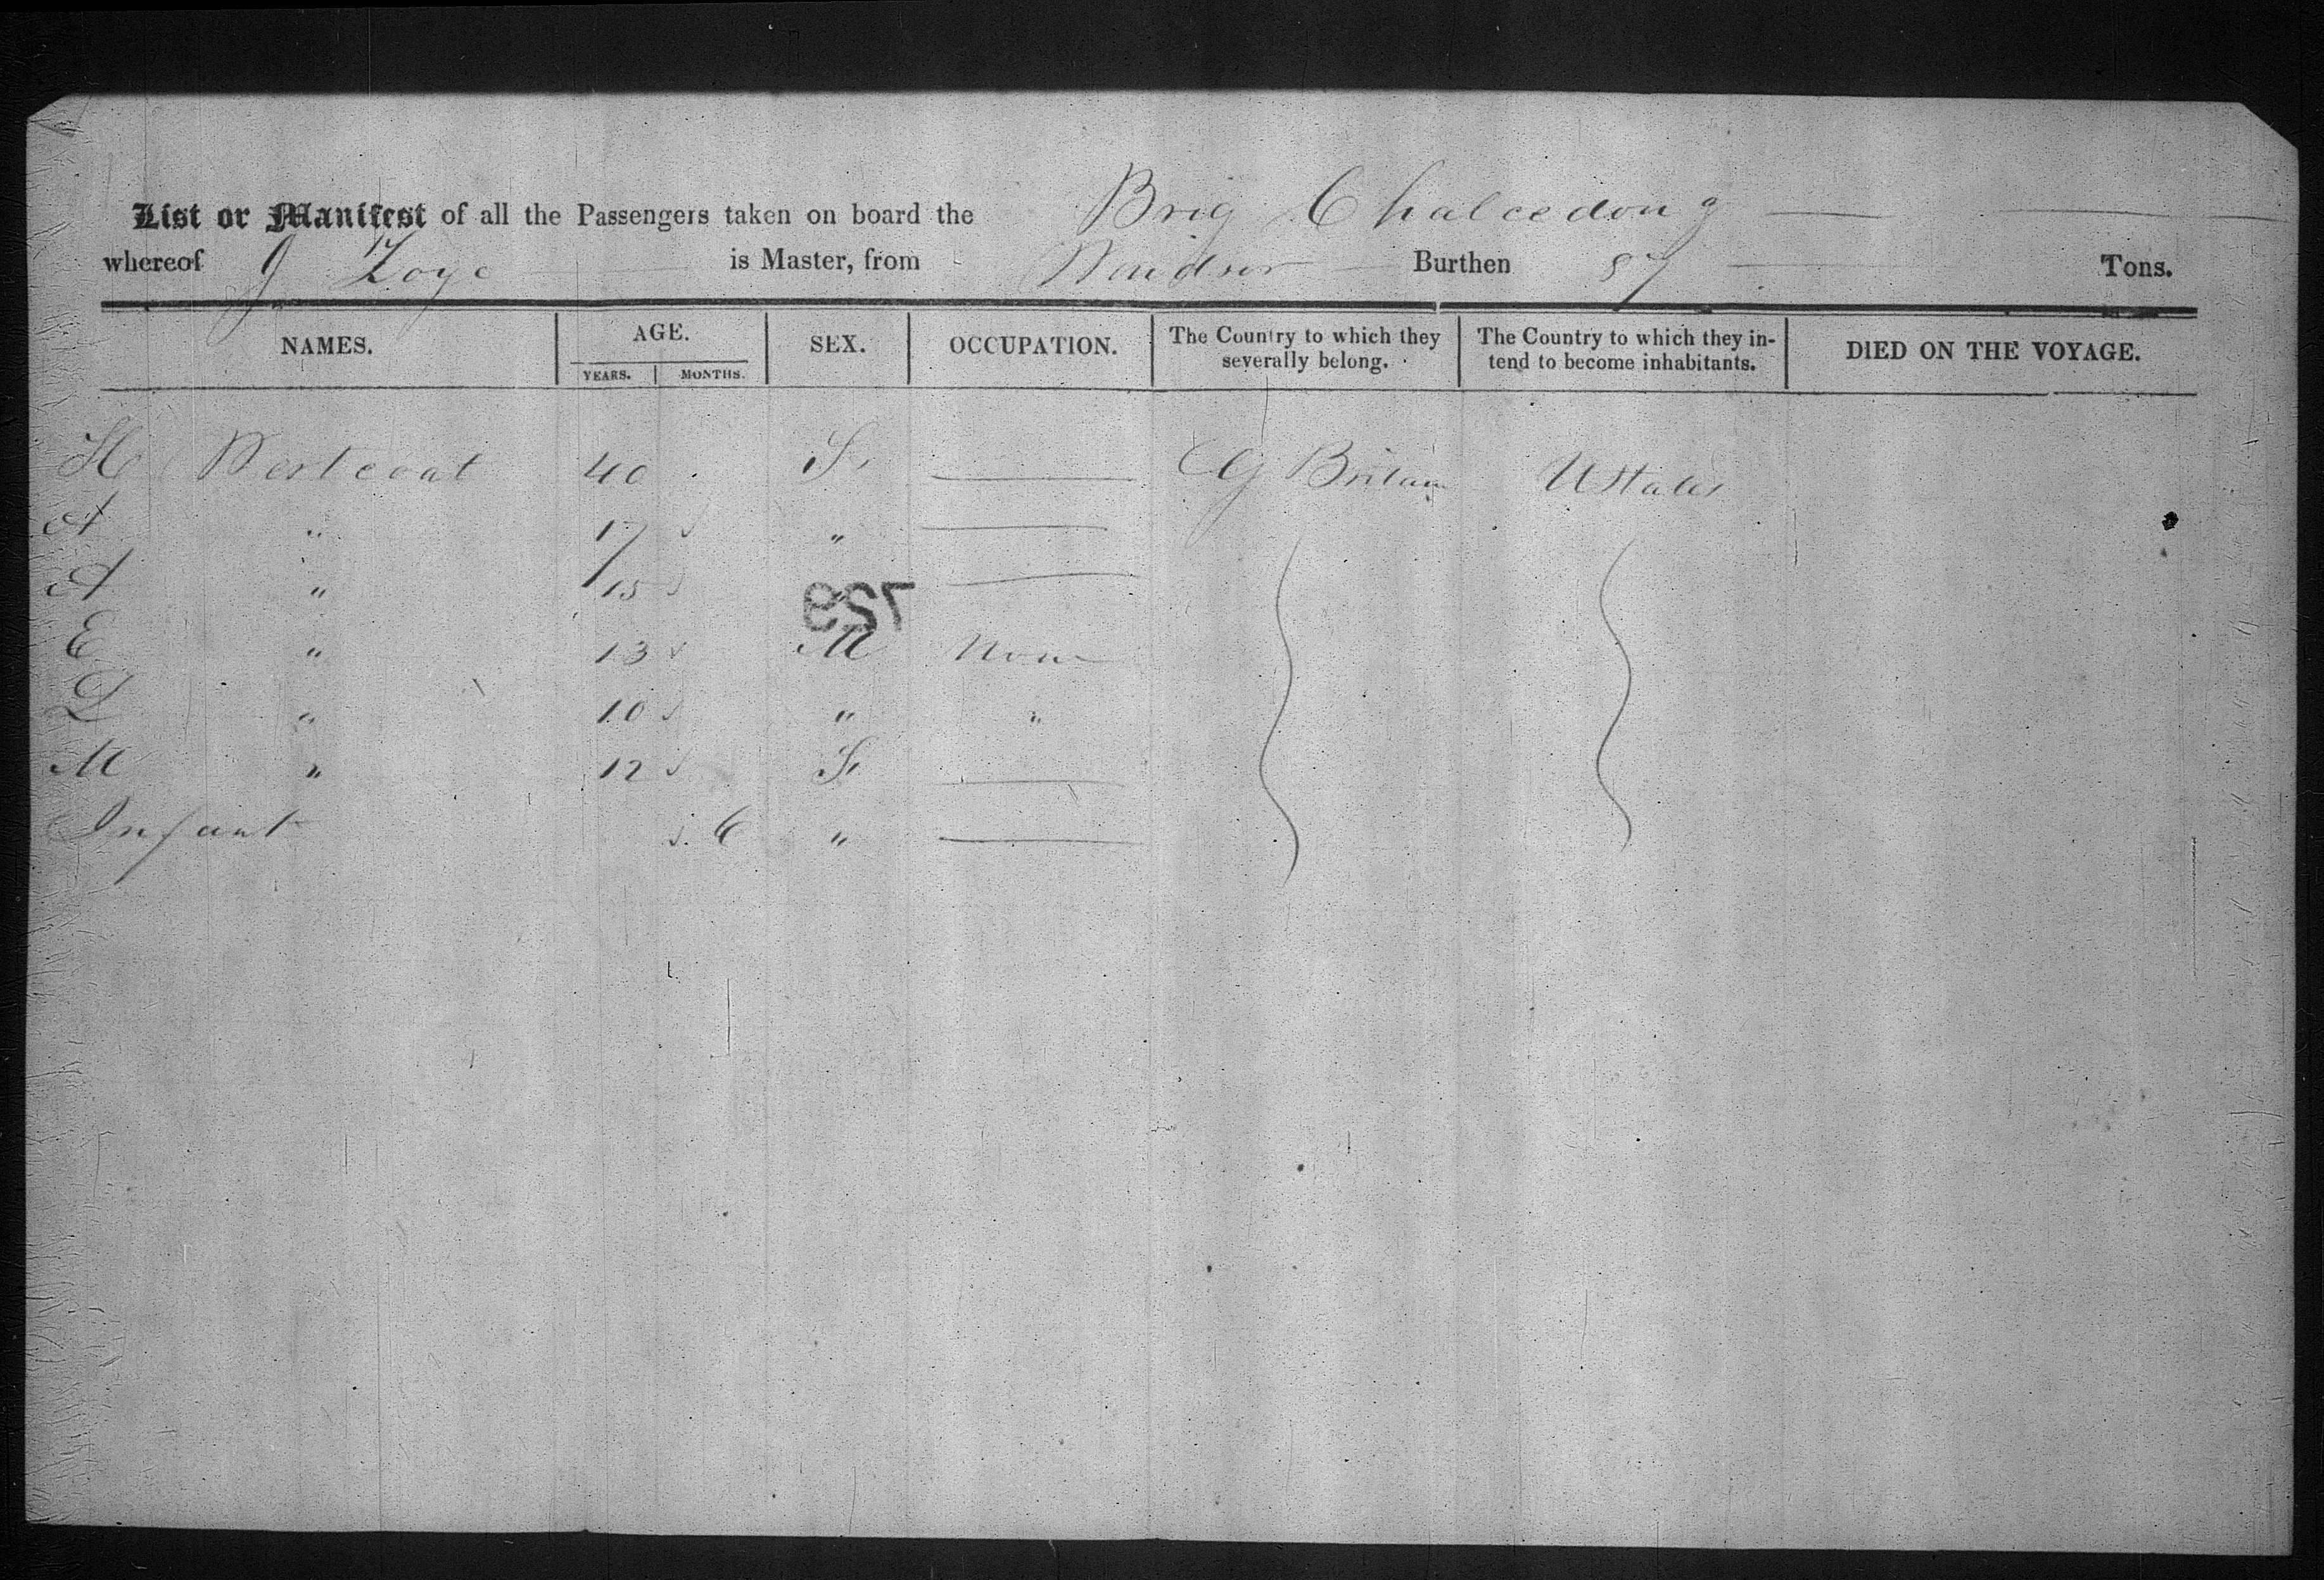 List or Manifest of all the Passengers taken on board the Brig Chalcedony
whereof J Zoye is Master, from Windsor Burthen 87 Tons.
NAMES. AGE. SEX. OCCUPATION. The Country to which they severally belong. The Country to which they in-tend to become inhabitants. DIED ON THE VOYAGE.
YEARS. MONTHS.
H Westcoat 40 F G Britain U States
A " 17 "
A " 15 "
729
E " 13 M None
L " 10 " "
M " 12 F
Infant 6 "